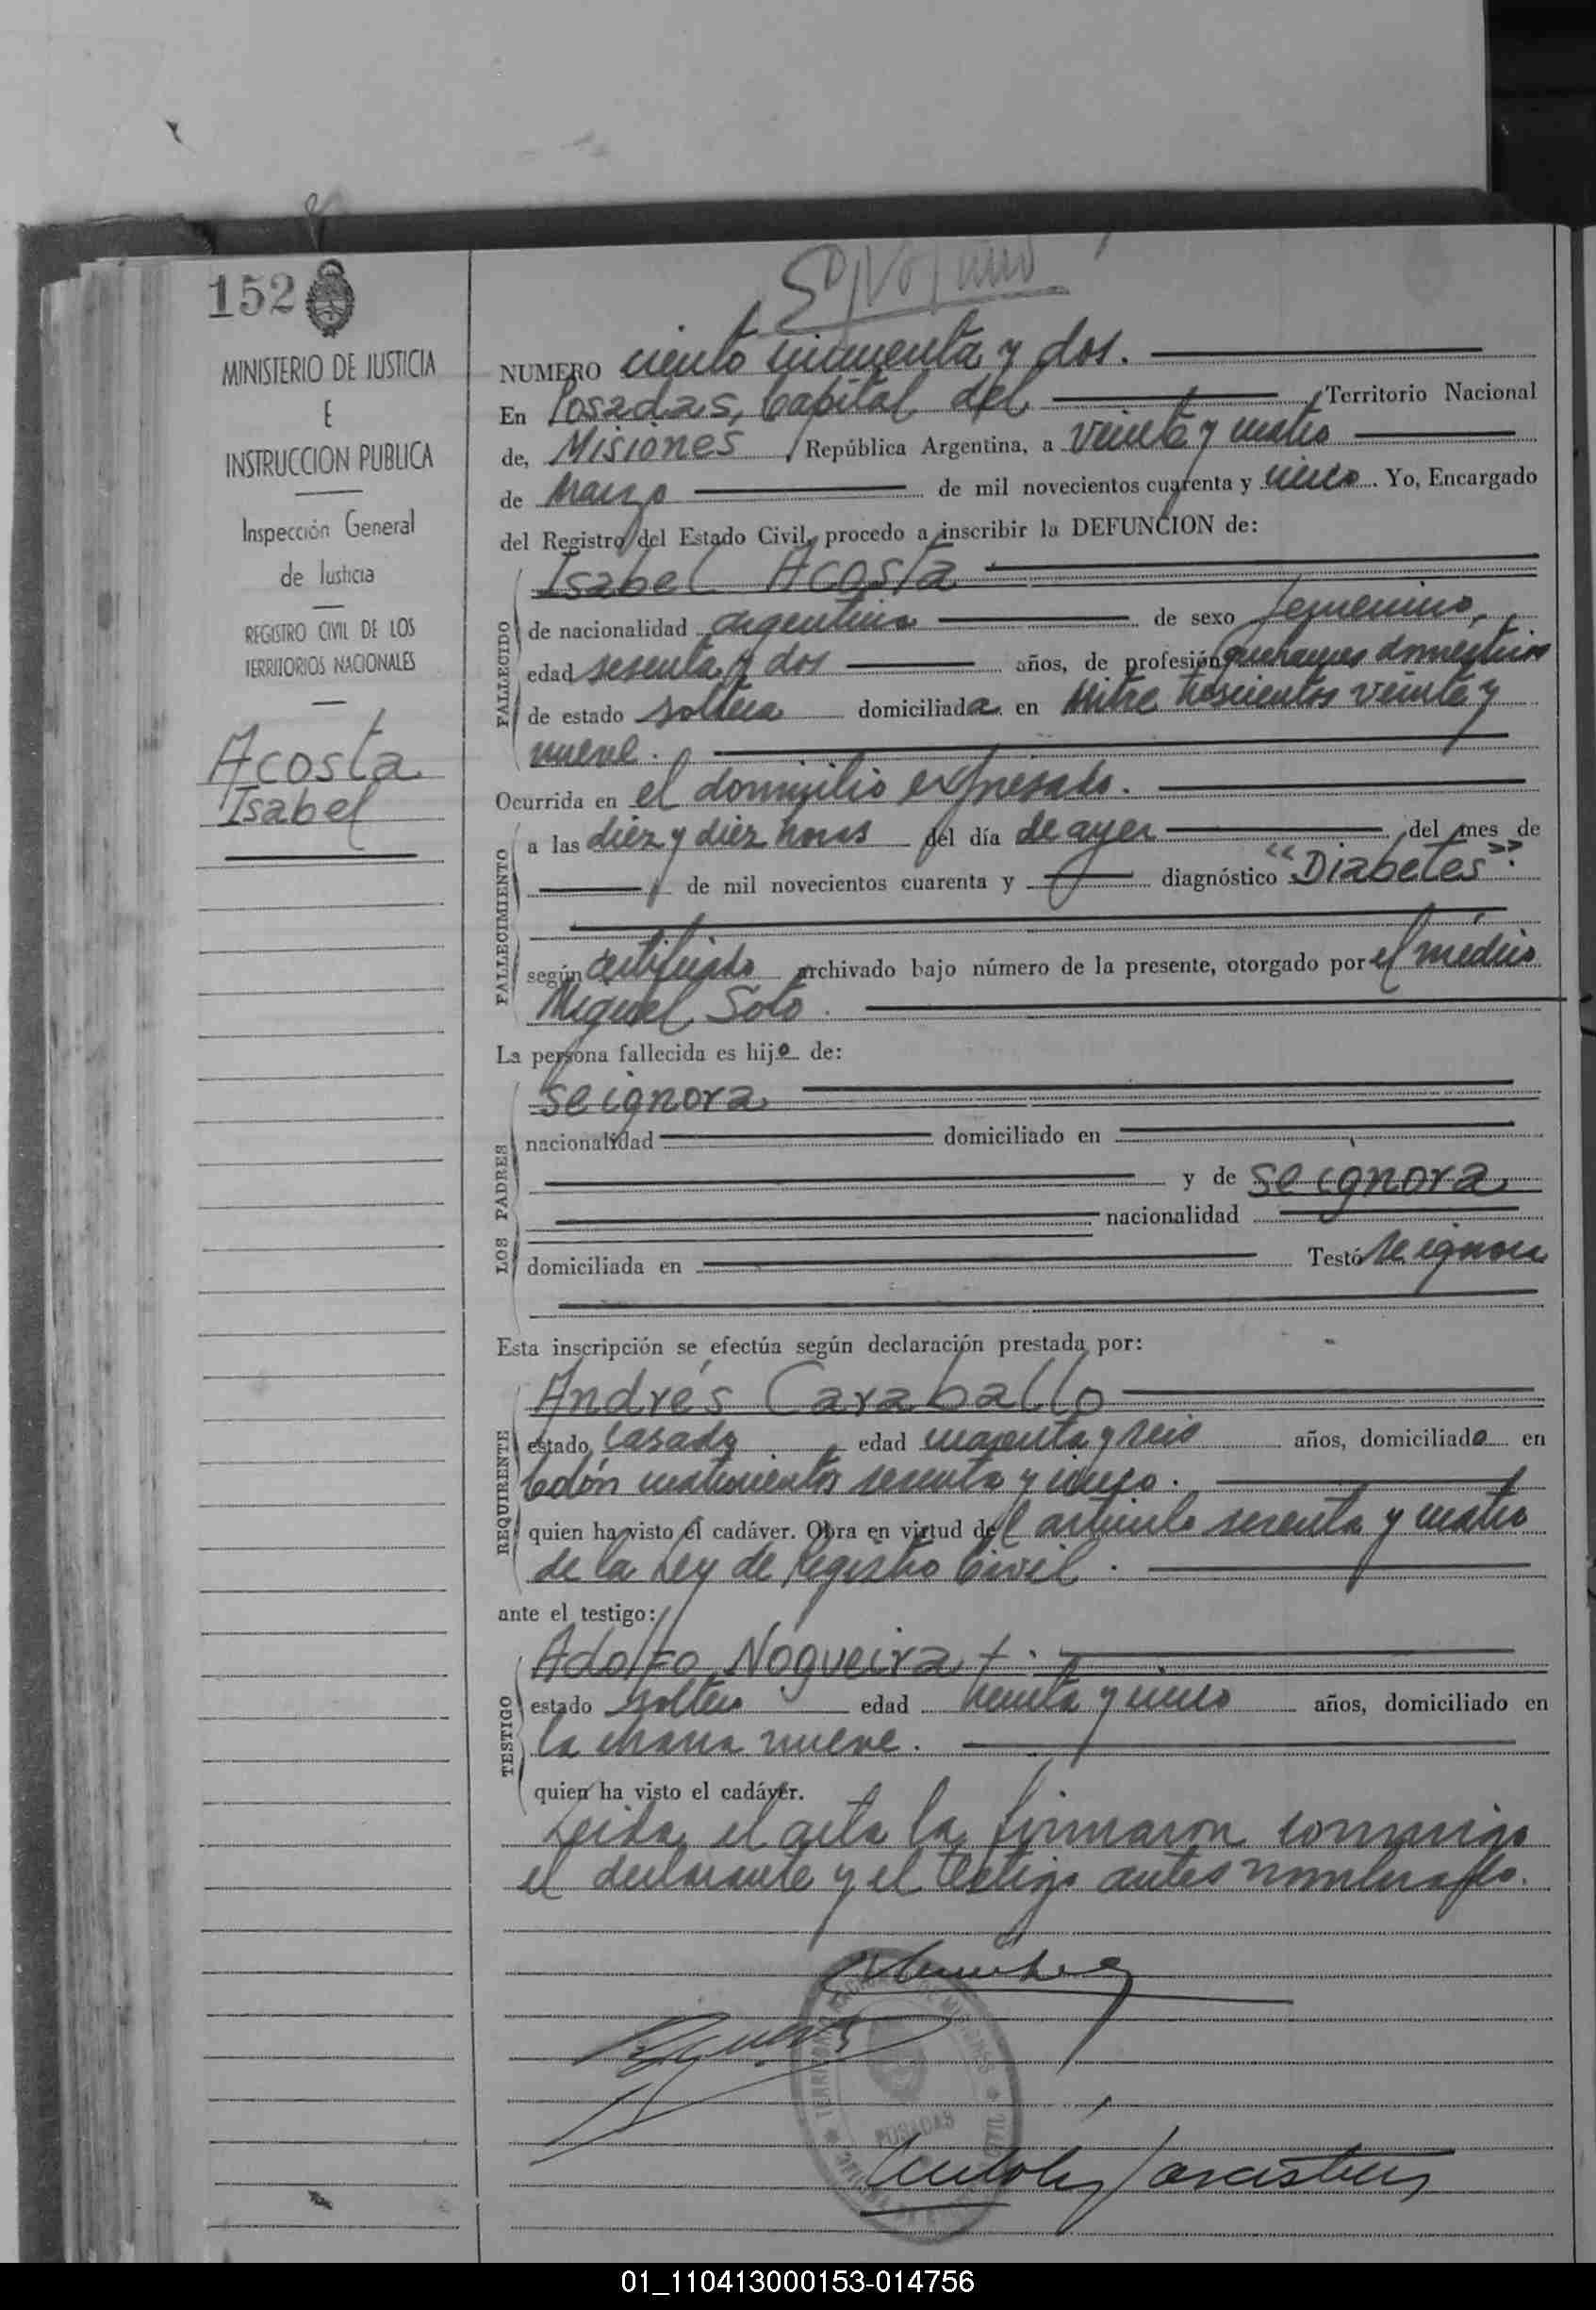 152
MINISTERIO DE JUSTICIA
E
INSTRUCCION PUBLICA
Inspección General
de Justicia
REGISTRO CIVIL DE LOS
TERRITORIOS NACIONALES
Acosta
Isabel
NUMERO ciento cincuenta y dos.
En Posadas, Capital del Territorio Nacional
de, Misiones, República Argentina, a veinte y cuatro
de Marzo de mil novecientos cuarenta y cinco. Yo, Encargado
del Registro del Estado Civil, procedo a inscribir la DEFUNCION de:
Isabel Acosta
FALLECIDO
de nacionalidad argentina de sexo femenino,
edad sesenta y dos años, de profesión quehaceres domésticos
de estado soltera domiciliada en Mitre trescientos veinte y
nueve.
Ocurrida en el domicilio expresado.
FALLECIMIENTO
a las diez y diez horas del día de ayer del mes de
de mil novecientos cuarenta y diagnóstico "Diabetes".
según certificado archivado bajo número de la presente, otorgado por el médico
Miguel Soto.
La persona fallecida es hijo de:
LOS PADRES
se ignora
nacionalidad domiciliado en
y de se ignora
nacionalidad
domiciliada en Testó se ignora
Esta inscripción se efectúa según declaración prestada por:
REQUIRENTE
Andrés Caraballo
estado casado edad cuarenta y seis años, domiciliado en
Colón cuatrocientos sesenta y cinco.
quien ha visto el cadáver. Obra en virtud del artículo sesenta y cuatro
de la Ley de Registro Civil.
ante el testigo:
TESTIGO
Adolfo Nogueira
estado soltero edad treinta y cinco años, domiciliado en
la chacra nueve.
quien ha visto el cadáver.
Leida el acta la firmaron conmigo
el declarante y el testigo antes nombrado.
POSADAS
01_110413000153-014756